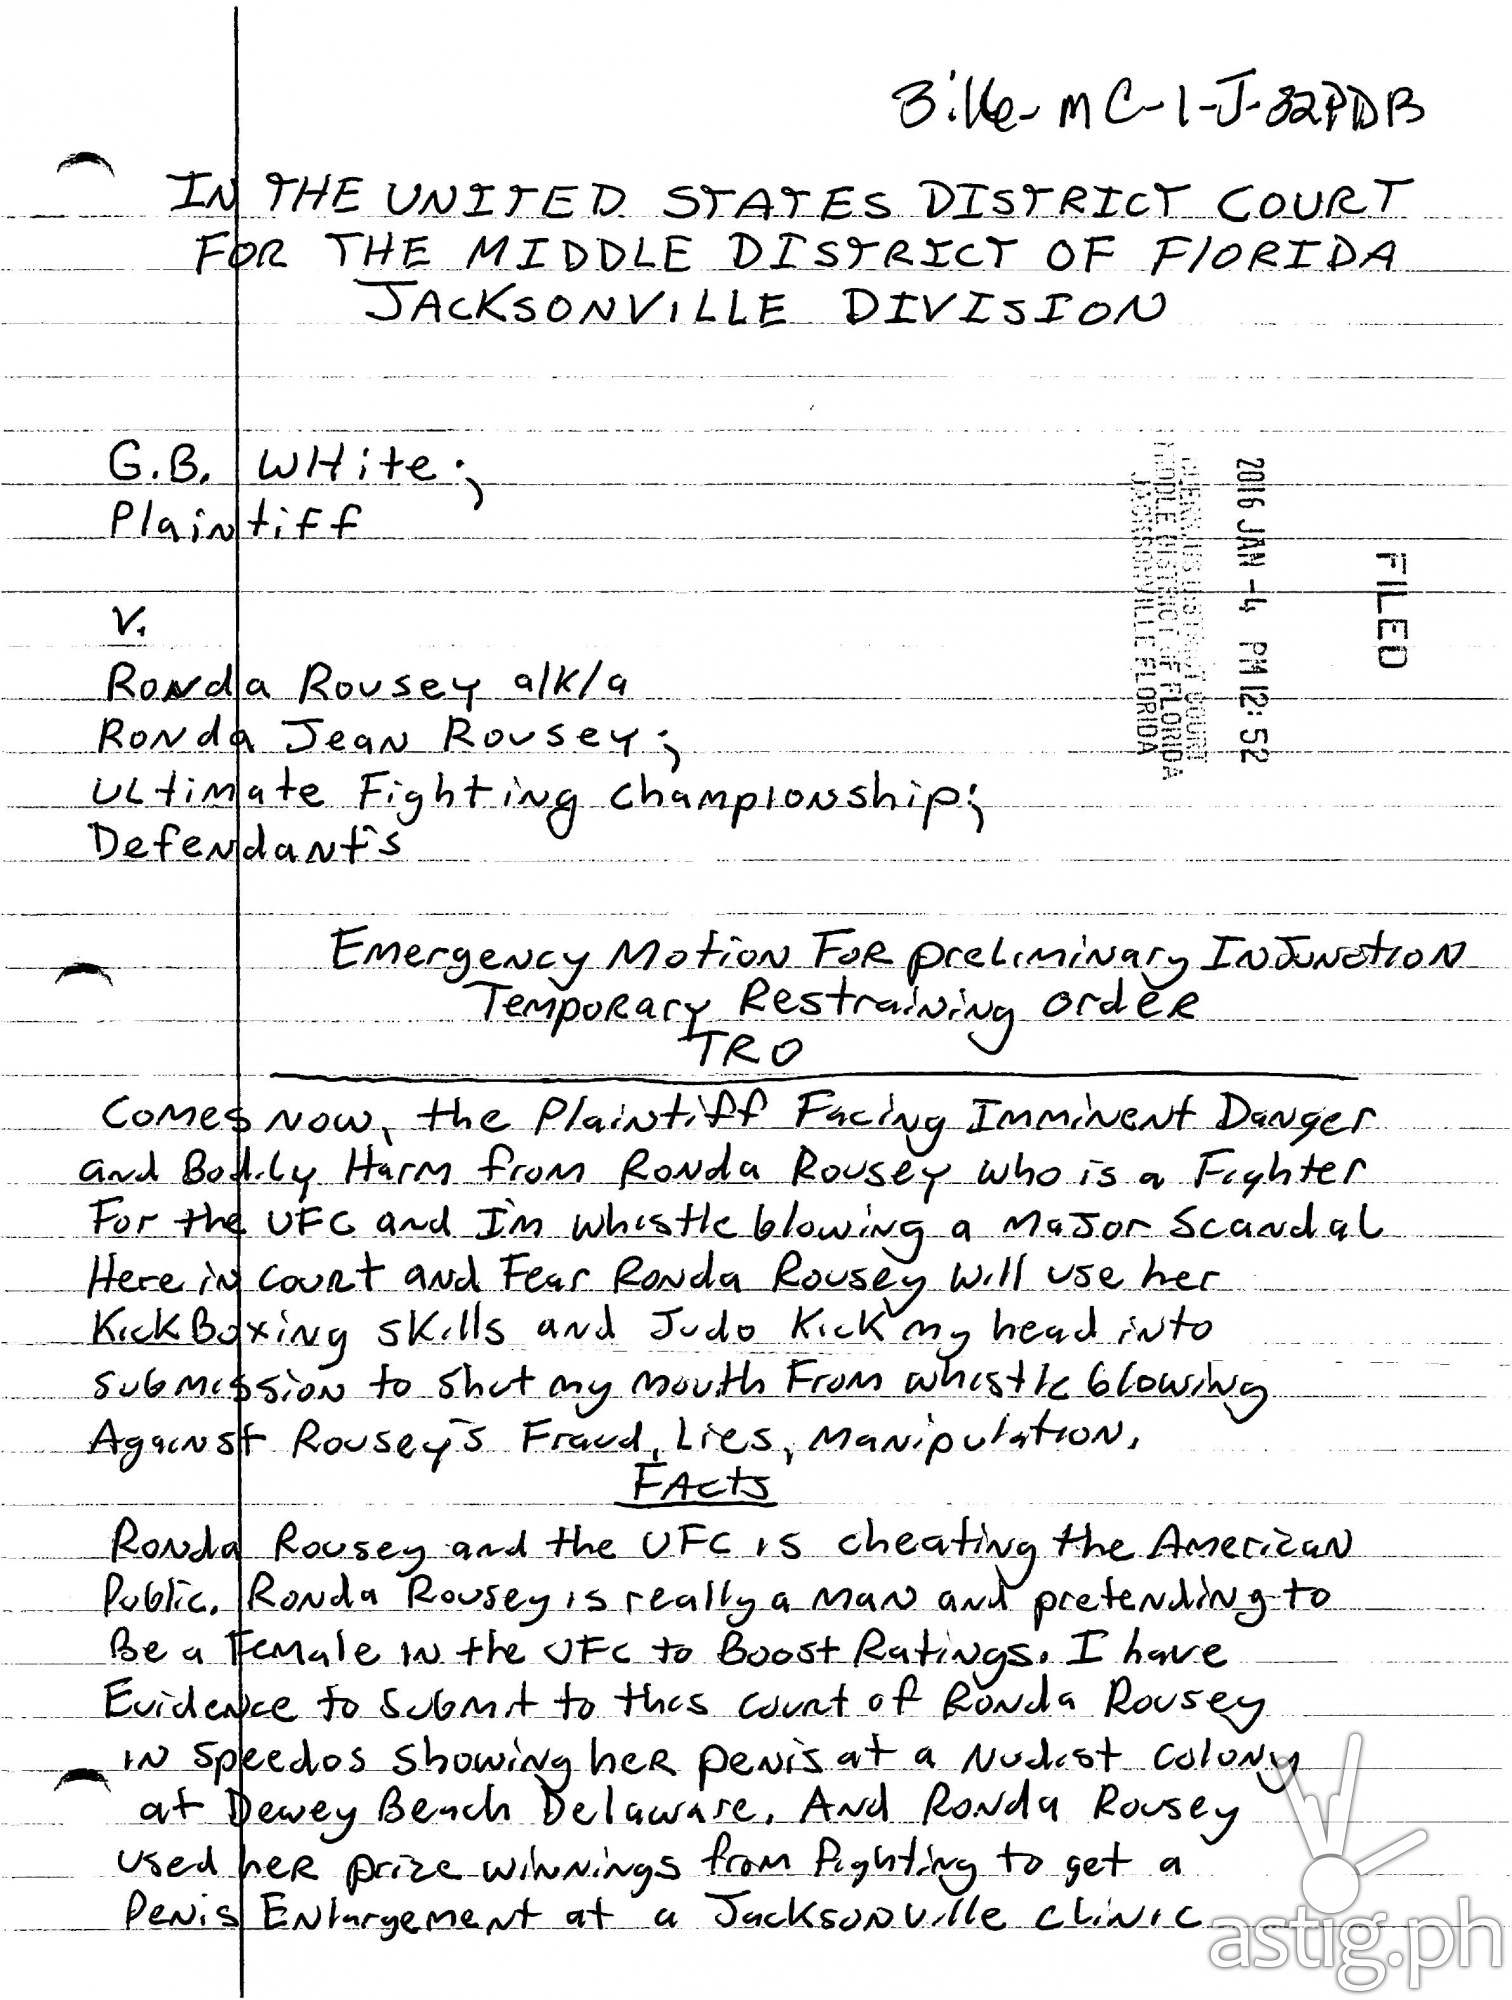 3:16-mc-1-J-32PDB
IN THE UNITED STATES DISTRICT COURT
FOR THE MIDDLE DISTRICT OF FLORIDA
JACKSONVILLE DIVISION
G.B. WHite;
Plaintiff
V.
Ronda Rousey a/k/a
Ronda Jean Rousey;
Ultimate Fighting Championship;
Defendant's
FILED
2016 JAN -4 PM 12:52
CLERK, US DISTRICT COURT
MIDDLE DISTRICT OF FLORIDA
JACKSONVILLE FLORIDA
Emergency Motion For preliminary Injunction
Temporary Restraining order
TRO
Comes now, the Plaintiff Facing Imminent Danger
and Bodily Harm from Ronda Rousey who is a Fighter
For the UFC and I'm whistle blowing a Major Scandal
Here in court and Fear Ronda Rousey will use her
KickBoxing skills and Judo Kick my head into
submission to shut my mouth From whistle blowing
Against Rousey's Fraud, Lies, Manipulation.
FActs
Ronda Rousey and the UFC is cheating the American
Public. Ronda Rousey is really a man and pretending to
Be a Female in the UFC to Boost Ratings. I have
Evidence to submit to this court of Ronda Rousey
in speedos showing her penis at a Nudist colony
at Dewey Beach Delaware. And Ronda Rousey
used her prize winnings from fighting to get a
Penis Enlargement at a Jacksonville clinic
astig.ph